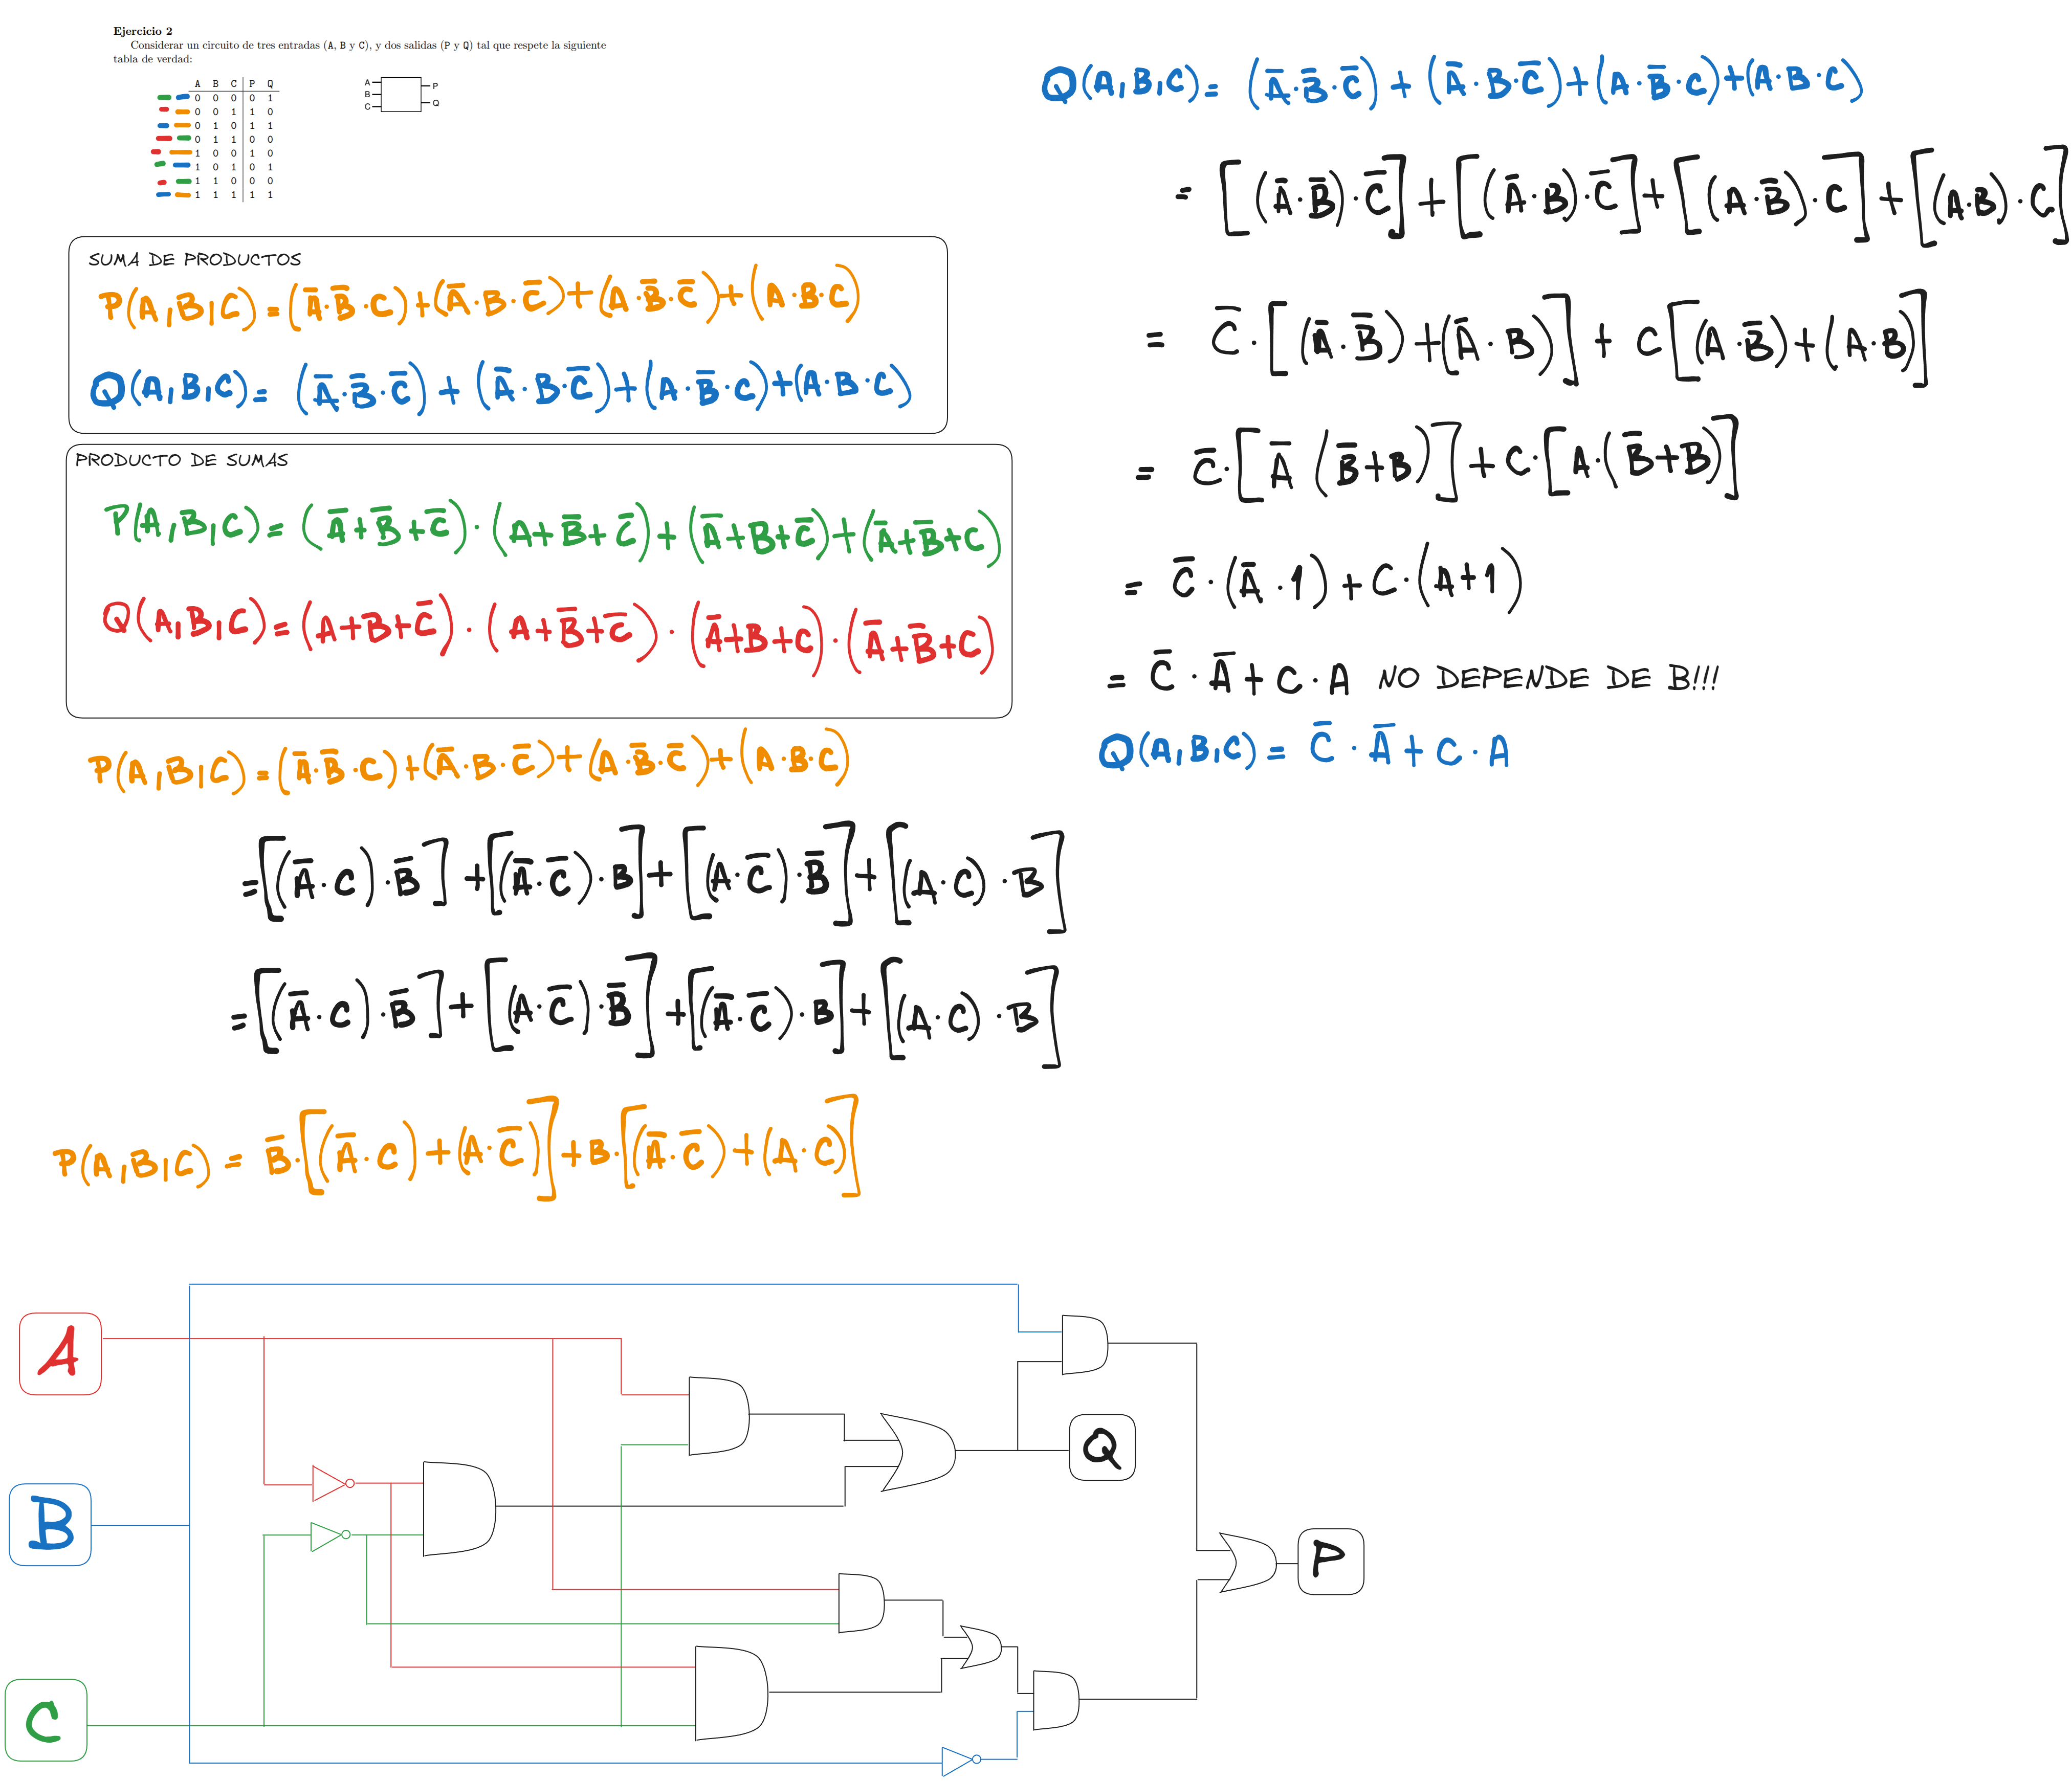 Ejercicio 2
Considerar un circuito de tres entradas (A, B y C), y dos salidas (P y Q) tal que respete la siguiente
tabla de verdad:
A B C P Q
0 0 0 0 1
0 0 1 1 0
0 1 0 1 1
0 1 1 0 0
1 0 0 1 0
1 0 1 0 1
1 1 0 0 0
1 1 1 1 1
A
B
C
P
Q
SUMA DE PRODUCTOS
P(A,B,C) = (A̅·B̅·C)+(A̅·B·C̅)+(A·B̅·C̅)+(A·B·C)
Q(A,B,C) = (A̅·B̅·C̅)+(A̅·B·C̅)+(A·B̅·C)+(A·B·C)
PRODUCTO DE SUMAS
P(A,B,C) = (A̅+B̅+C̅)·(A+B̅+C̅)+(A̅+B+C̅)+(A̅+B̅+C)
Q(A,B,C) = (A+B+C̅)·(A+B̅+C̅)·(A̅+B+C)·(A̅+B̅+C)
P(A,B,C) = (A̅·B̅·C)+(A̅·B·C̅)+(A·B̅·C̅)+(A·B·C)
=[(A̅·C)·B̅]+[(A̅·C̅)·B]+[(A·C̅)·B̅]+[(A·C)·B]
=[(A̅·C)·B̅]+[(A·C̅)·B̅]+[(A̅·C̅)·B]+[(A·C)·B]
P(A,B,C) = B̅·[(A̅·C)+(A·C̅)]+B·[(A̅·C̅)+(A·C)]
Q(A,B,C) = (A̅·B̅·C̅)+(A̅·B·C̅)+(A·B̅·C)+(A·B·C)
= [(A̅·B̅)·C̅]+[(A̅·B)·C̅]+[(A·B̅)·C]+[(A·B)·C]
= C̅·[(A̅·B̅)+(A̅·B)]+C[(A·B̅)+(A·B)]
= C̅·[A̅(B̅+B)]+C·[A·(B̅+B)]
= C̅·(A̅·1)+C·(A+1)
= C̅·A̅+C·A NO DEPENDE DE B!!!
Q(A,B,C) = C̅·A̅+C·A
A
B
C
Q
P